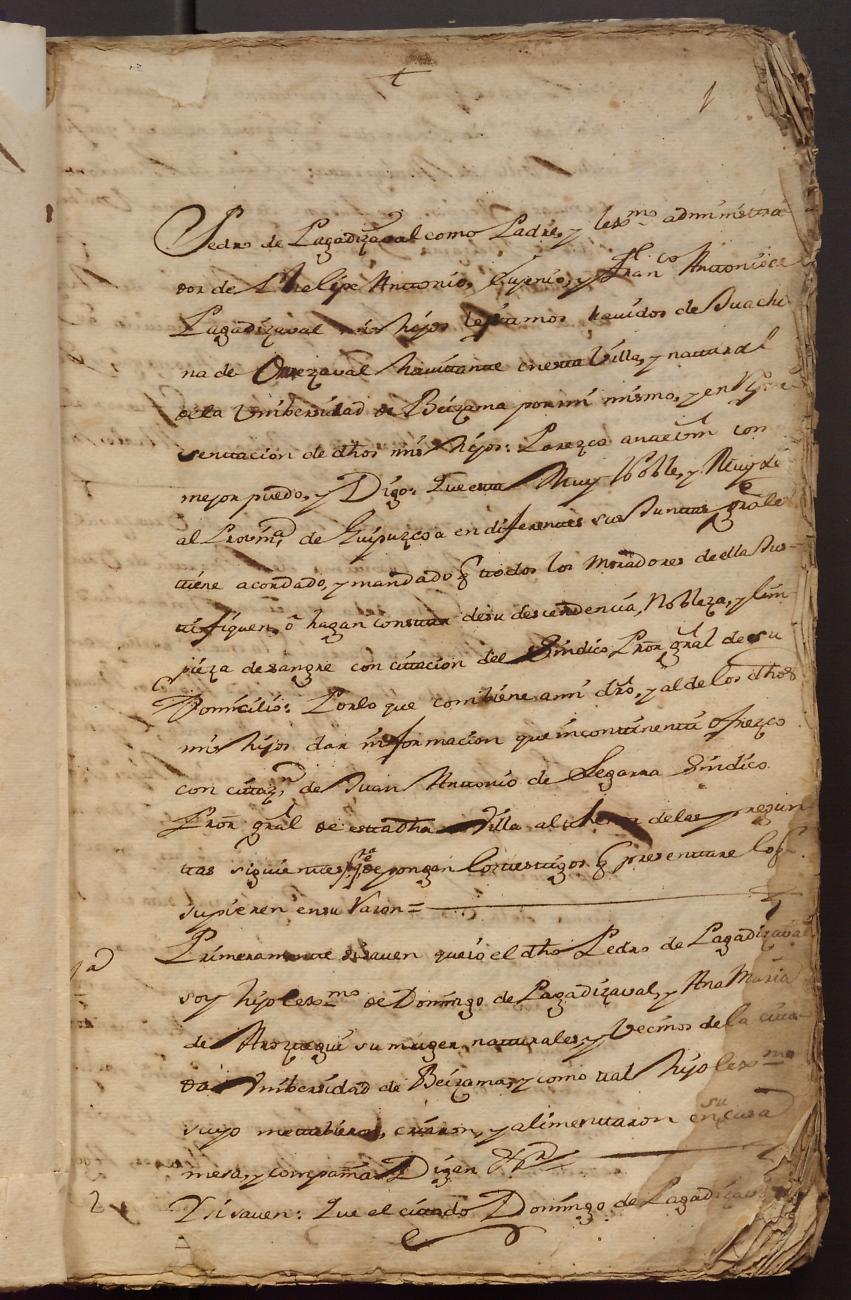 1
Pedro de Lagadizaval como Padre, y lexmo administra
dor de Phelipe Antonio, Eugenio, y Franco Antonio de
Lagadizaval mis hijos lexitimos hauidos de Juachi
na de Ormezaval havitante en esta Villa, y natural
de la Vniberisidad de Beizama por mi mismo, y en Repre
sentacion de dhos mis hijos: Parezco ante Vm como
mejor puedo, y Digo: Que esta Muy Noble, y Muy Le
al Provinca de Guipuzcoa en diferentes sus Juntas grales
tiene acordado, y mandado q todos los Moradores de ella Jus
tifiquen, ô hagan constar de su descendencia, Nobleza, y lim
pieza de sangre con citacion del Sindico Pror gral de su
Domicilio: Por lo que combiene a mi dro, y al de los dhos
mis hijos dar informacion que incontinenti ofrezco
con citazn de Juan Antonio de Segarra Sindico
Pror gral de esta dha Villa al thenor de las pregun
tas siguientes depongan los testigos q presentare los
supieren en su Razon =
1a Primeramente si saven que io el dho Pedro de Lagadizaval
soy hijo lexmo de Domingo de Lagadizaval, y Ana Maria
de Aroztegui su muger, naturales, y Vecinos de la cita
da Vniberisidad de Beizama, y como tal hijo lexmo
suyo me tubieron, criaron, y alimentaron en su casa
mesa, y compañia Digan &a
2 Y si saven: Que el citado Domingo de Lagadizaval